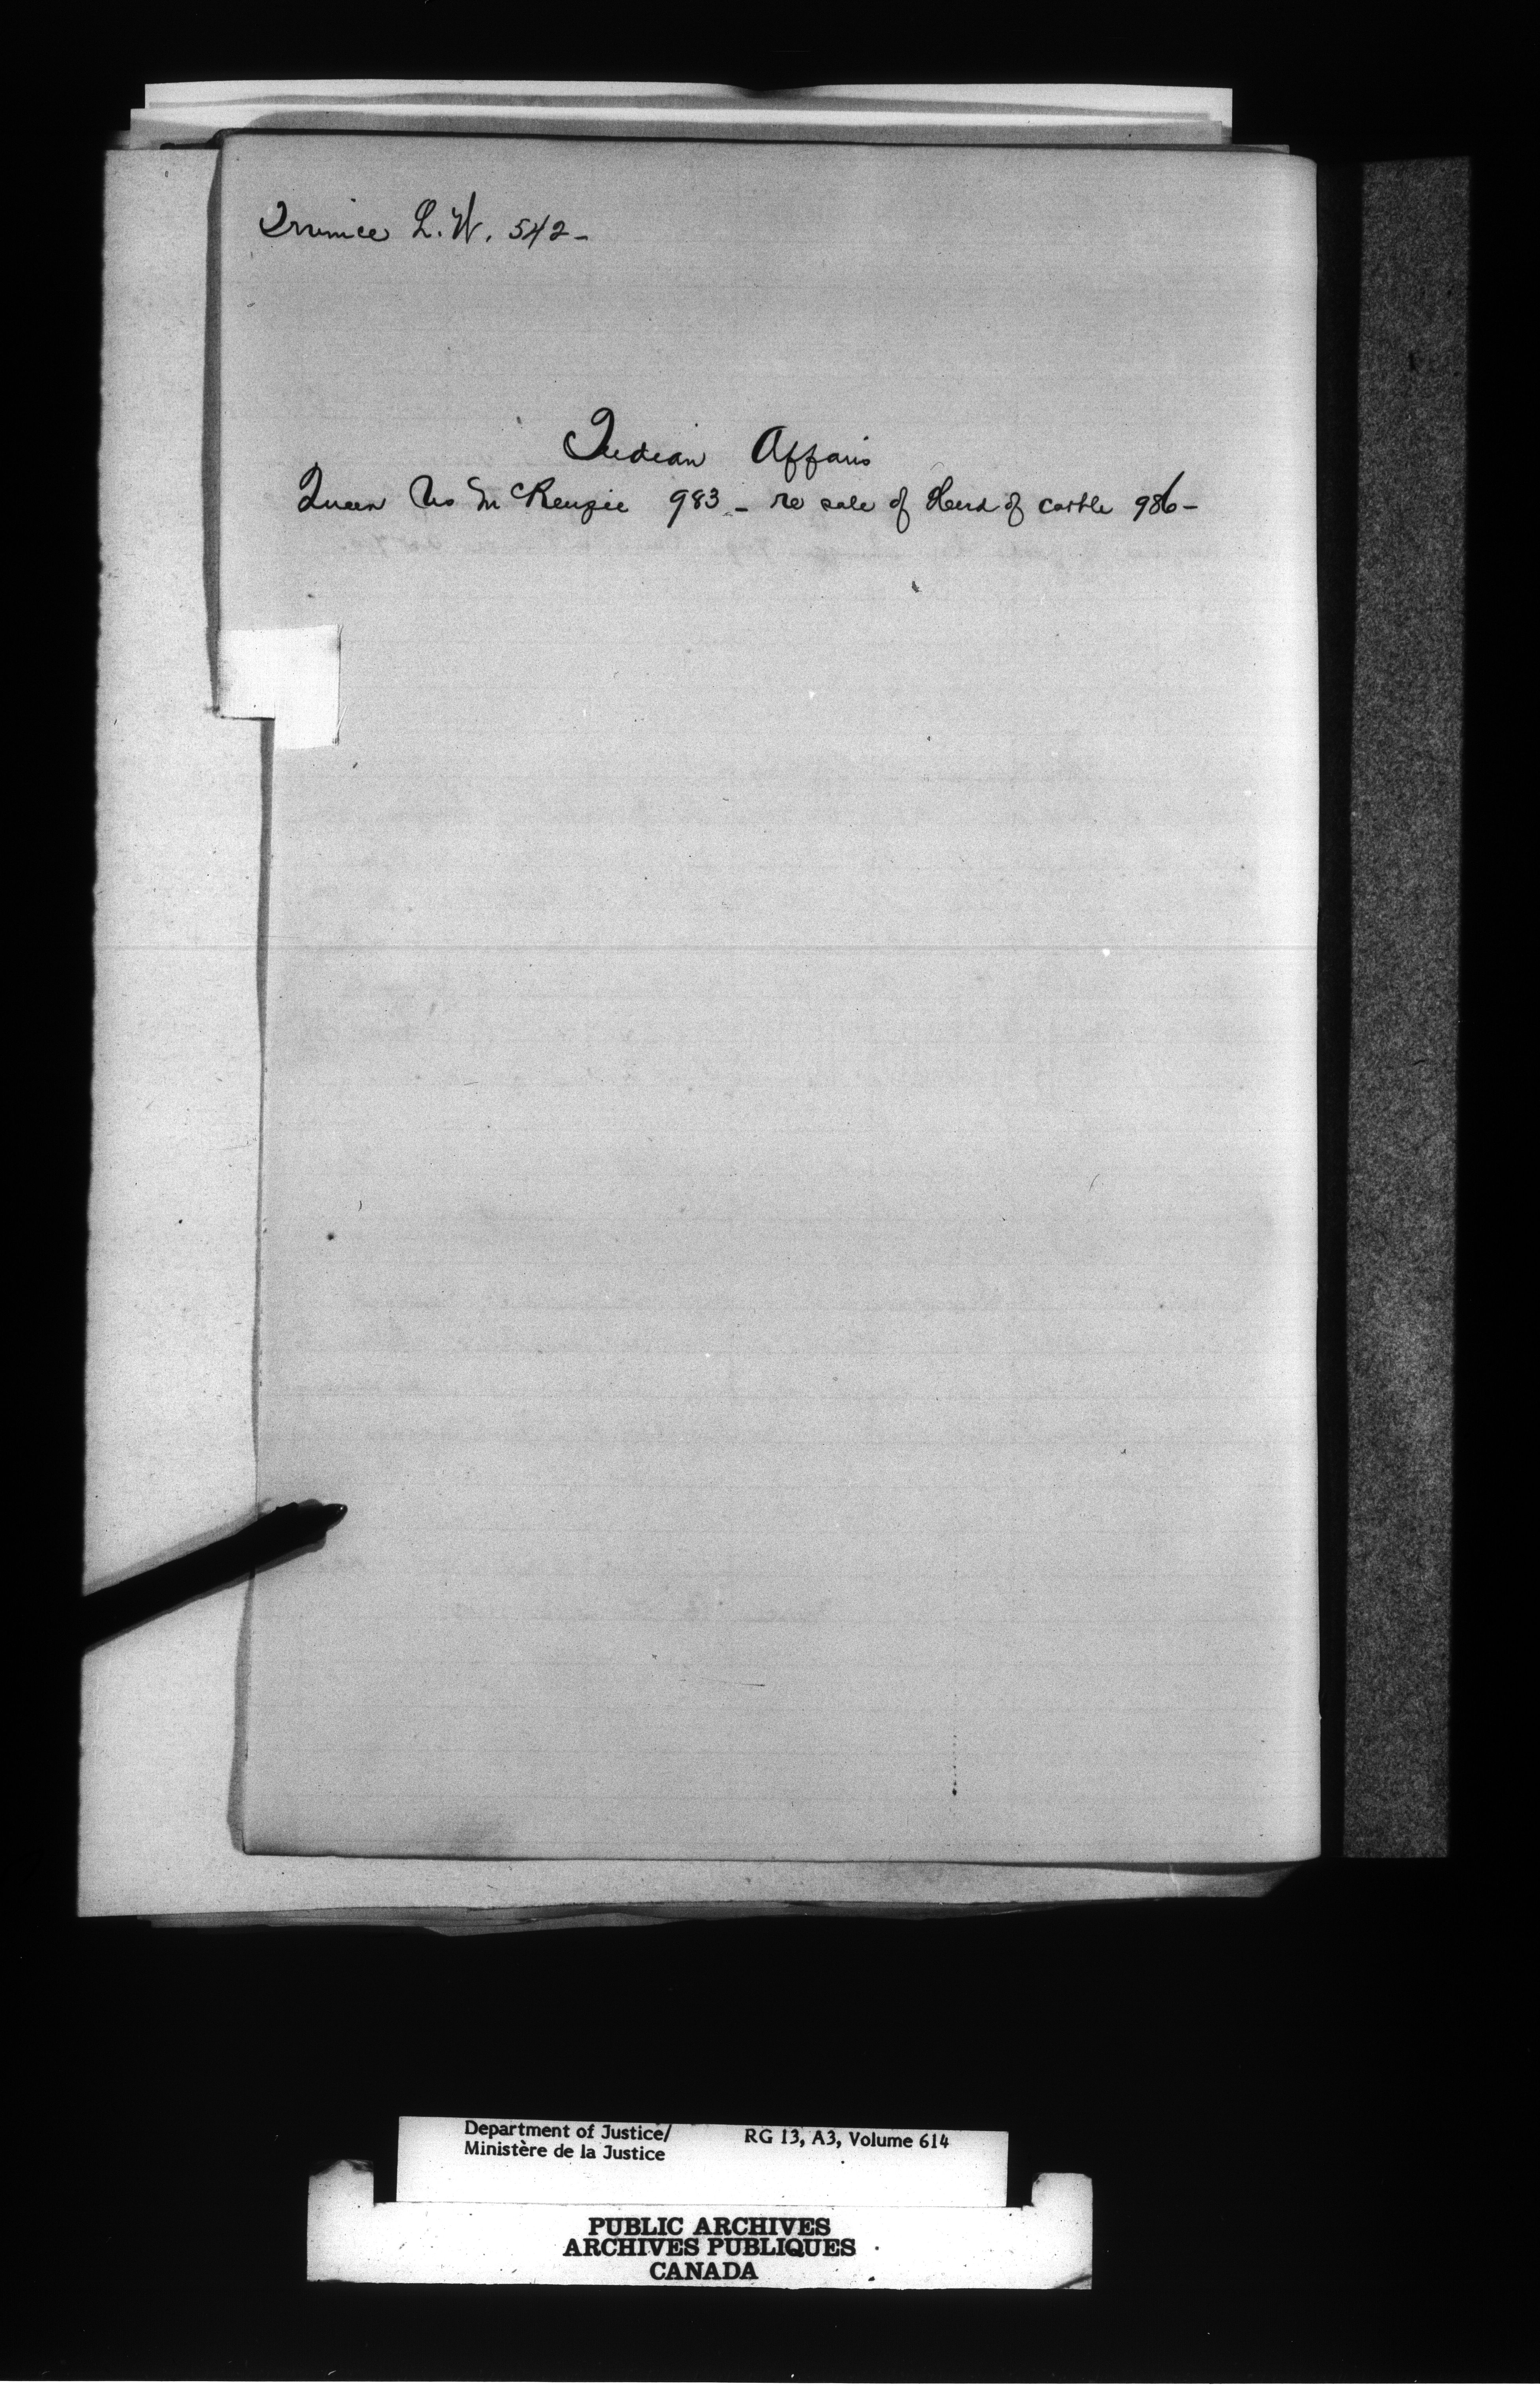 L. W. 542 -
Indian Affairs
Queen vs McKenzie 983 - re sale of Herd of cattle 986 -
Department of Justice/
Ministère de la Justice
RG 13, A3, Volume 614
PUBLIC ARCHIVES
ARCHIVES PUBLIQUES
CANADA